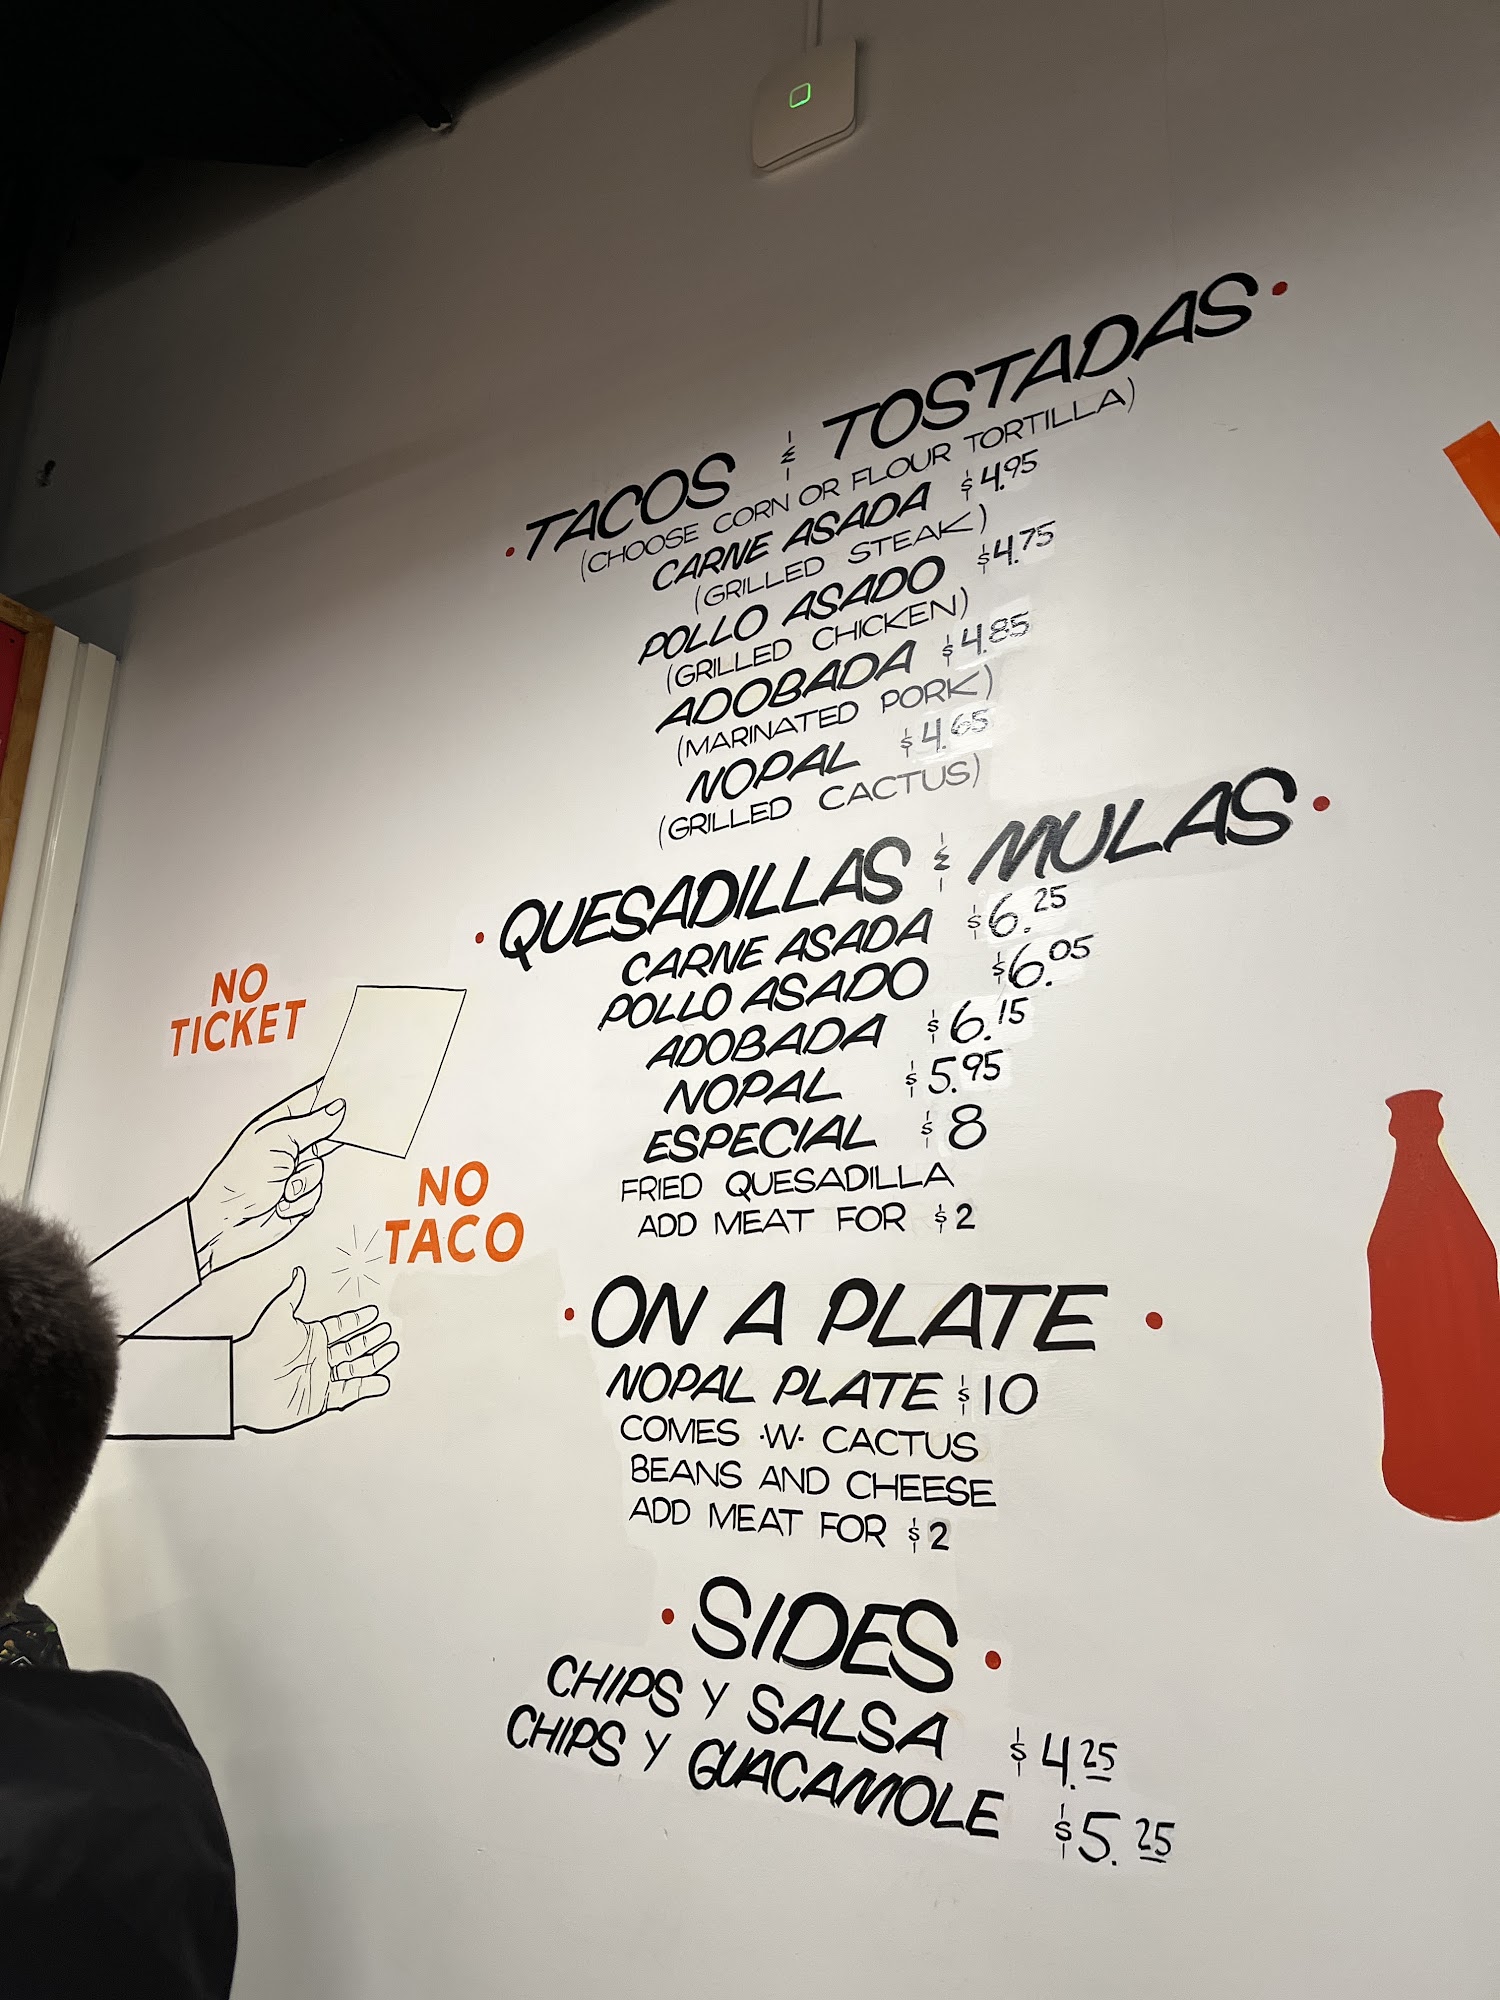 TACOS & TOSTADAS
(CHOOSE CORN OR FLOUR TORTILLA)
CARNE ASADA $4.95
(GRILLED STEAK)
POLLO ASADO $4.75
(GRILLED CHICKEN)
ADOBADA $4.85
(MARINATED PORK)
NOPAL $4.65
(GRILLED CACTUS)
QUESADILLAS & MULAS
CARNE ASADA $6.25
POLLO ASADO $6.05
ADOBADA $6.15
NOPAL $5.95
ESPECIAL $8
FRIED QUESADILLA
ADD MEAT FOR $2
NO
TICKET
NO
TACO
ON A PLATE
NOPAL PLATE $10
COMES ·W· CACTUS
BEANS AND CHEESE
ADD MEAT FOR $2
SIDES
CHIPS Y SALSA $4.25
CHIPS Y GUACAMOLE $5.25